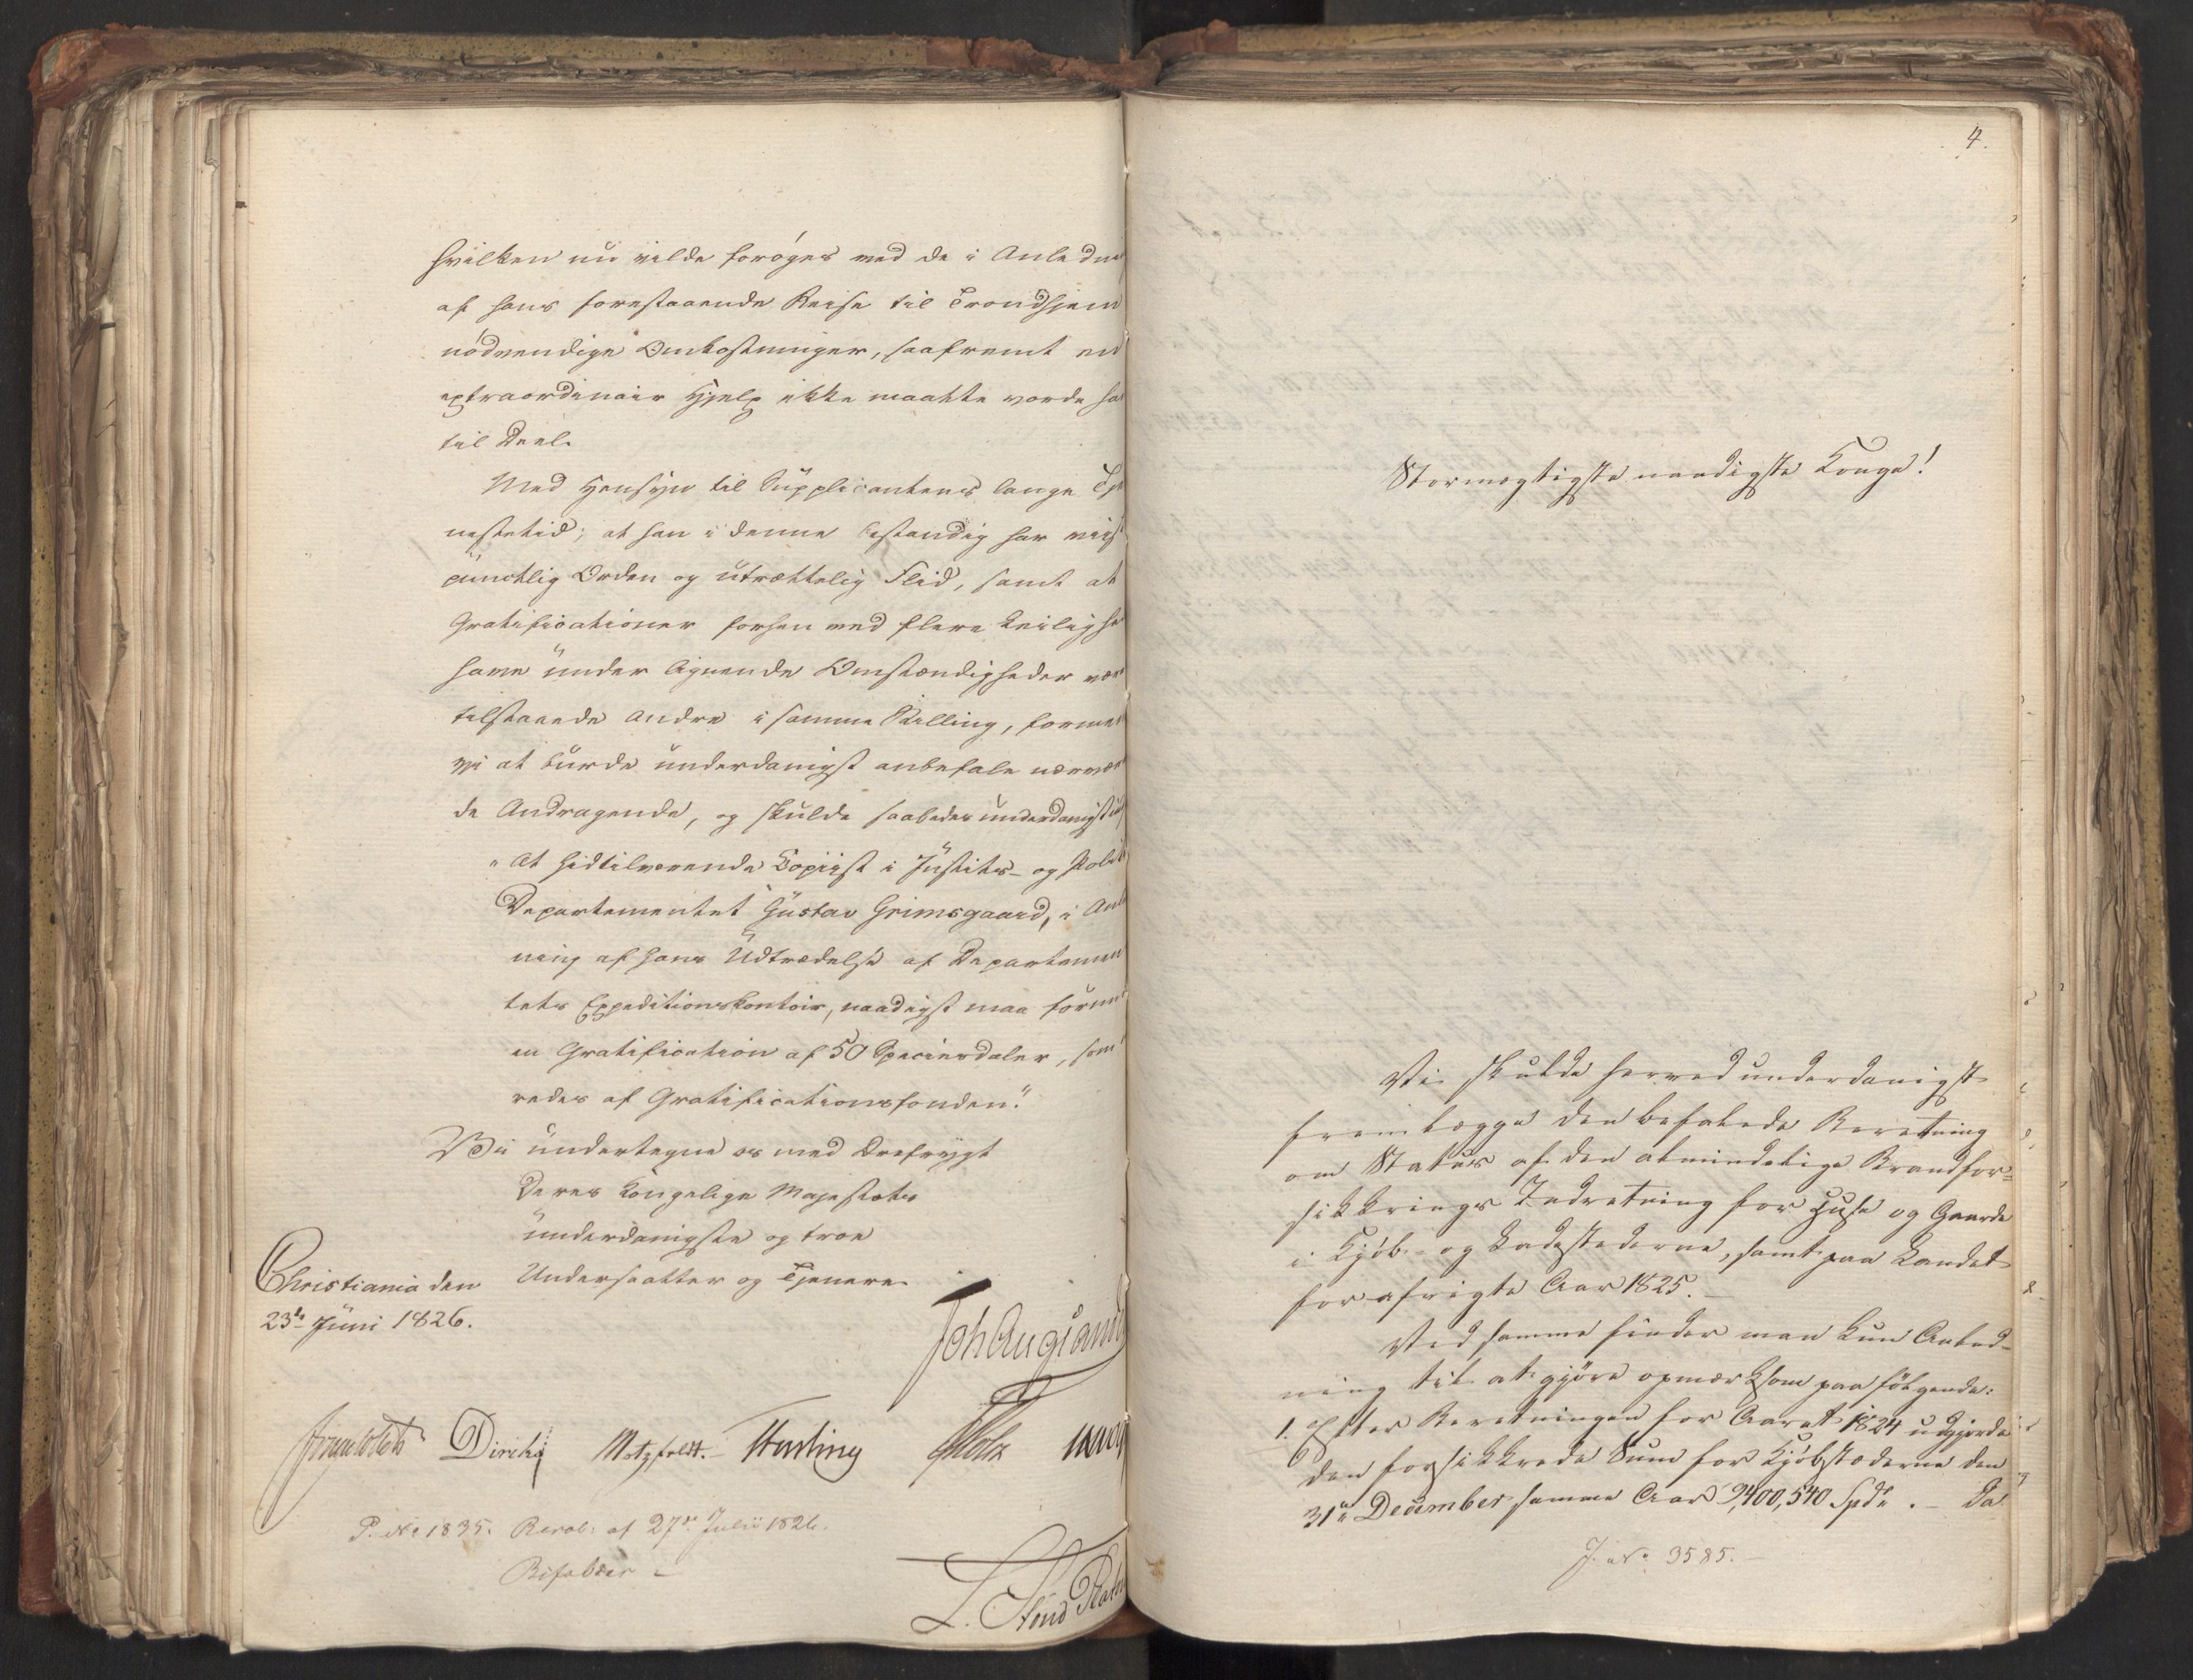 hvilken nu vilde forøges med de i Anledn
af hans forestaaende Reise til Trondhjem
nødvendige Omkostninger, saafremt en
extraordinair Hjelp ikke maatte vorde ha
til Deel.
Med Hensyn til Supplicantens lange Tje
nestetid; at han i denne bestandig har viist
punctlig Orden og utrættelig Flid, samt at
Gratificationer forhen ved flere Leilighe
have under lignende Omstændigheder vær
tilstaaede andre i samme Stilling, formene
vi at burde underdanigst anbefale nærvær
de Andragende, og skulde saaledes underdanigst
"At hidtilværende Copiist i Justits- og Polit
Departementet Gustav Grimsgaard, i Anl
ning af hans Udtrædelse af Departemen
tets Expeditionskontoir, naadigst maa forun
en Gratification af 50 Speciesdaler, som
redes af Gratificationsfonden."
Vi undertegne os med Ærefrygt
Deres Kongelige Majestæts
underdanigste og troe
Undersaatter og Tjenere.
Christiania den
23de Juni 1826.
Joh Aug Sand
Diriks Motzfeldt. Holst
P. No 1835. Resol: af 27de Julii 1826.
Bifaldes
4.
Stormægtigste naadigste Konge!
Vi skulde herved underdanigst
fremlægge den befalede Beretning
om Status af den almindelige Brandfor=
sikkrings Indretning for Huse og Gaarde
i Kjøb- og Ladestederne, samt paa Landet
for afvigte Aar 1825.
Ved samme finder man kun Anled-
ning til at gjøre opmærksom paa følgende:
1. Efter Beretningen for Aaret 1824 udgjorde
den forsikkrede Sum for Kjøbstæderne den
31te December samme Aar 9,400,540 Spd. - Da
J. No 3585.